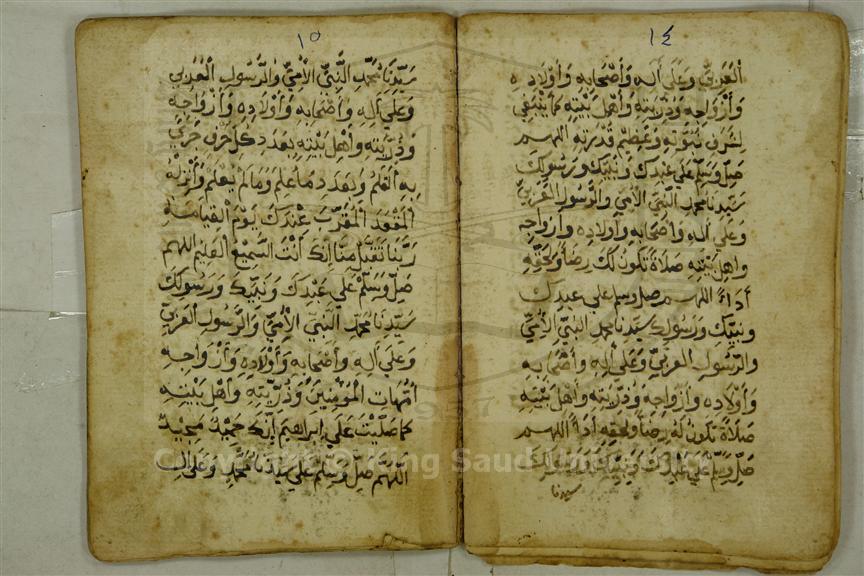 ١٤
العربي وعلى اله وأصحابه وأولاده
وأزواجه وذريته وأهل بيته كما ينبغي
لشرف نبوته وعظيم قدرته اللهم
صل وسلم علي عبدك ونبيك ورسولك
سيدنا محمد النبي الأمي والرسول العربي
وعلي اله واصحابه وأولاده وأزواجه
واهل بيته صلاة تكون لك رضاً ولحقه
أداءً اللهم صل وسلم علي عبدك
ونبيك ورسولك سيدنا محمد النبي الأمي
والرسول العربي وعلى اله وأصحابه
وأولاده وأزواجه وذريته وأهل بيته
صلاة تكون له رضاً ولحقه أداً اللهم
صل وسلم على عبدك ونبيك ورسولك
سيدنا
١٥
سيدنا محمد النبي الأمي والرسول العربي
وعلى اله وأصحابه وأولاده وأزواجه
وذريته وأهل بيته بعدد كل حرف جرى
به القلم وبعدد ما علم وما لم يعلم وأنزله
المقعد المقرب عندك يوم القيامة
ربنا تقبل منا إنك أنت السميع العليم اللهم
صل وسلم علي عبدك ونبيك ورسولك
سيدنا محمد النبي الأمي والرسول العربي
وعلي اله وأصحابه وأولاده وأزواجه
أمهات المؤمنين وذريته وأهل بيته
كما صليت علي إبراهيم إنك حميد مجيد
اللهم صل وسلم علي سيدنا محمد وعلى ال
1957
Copyright © King Saud University